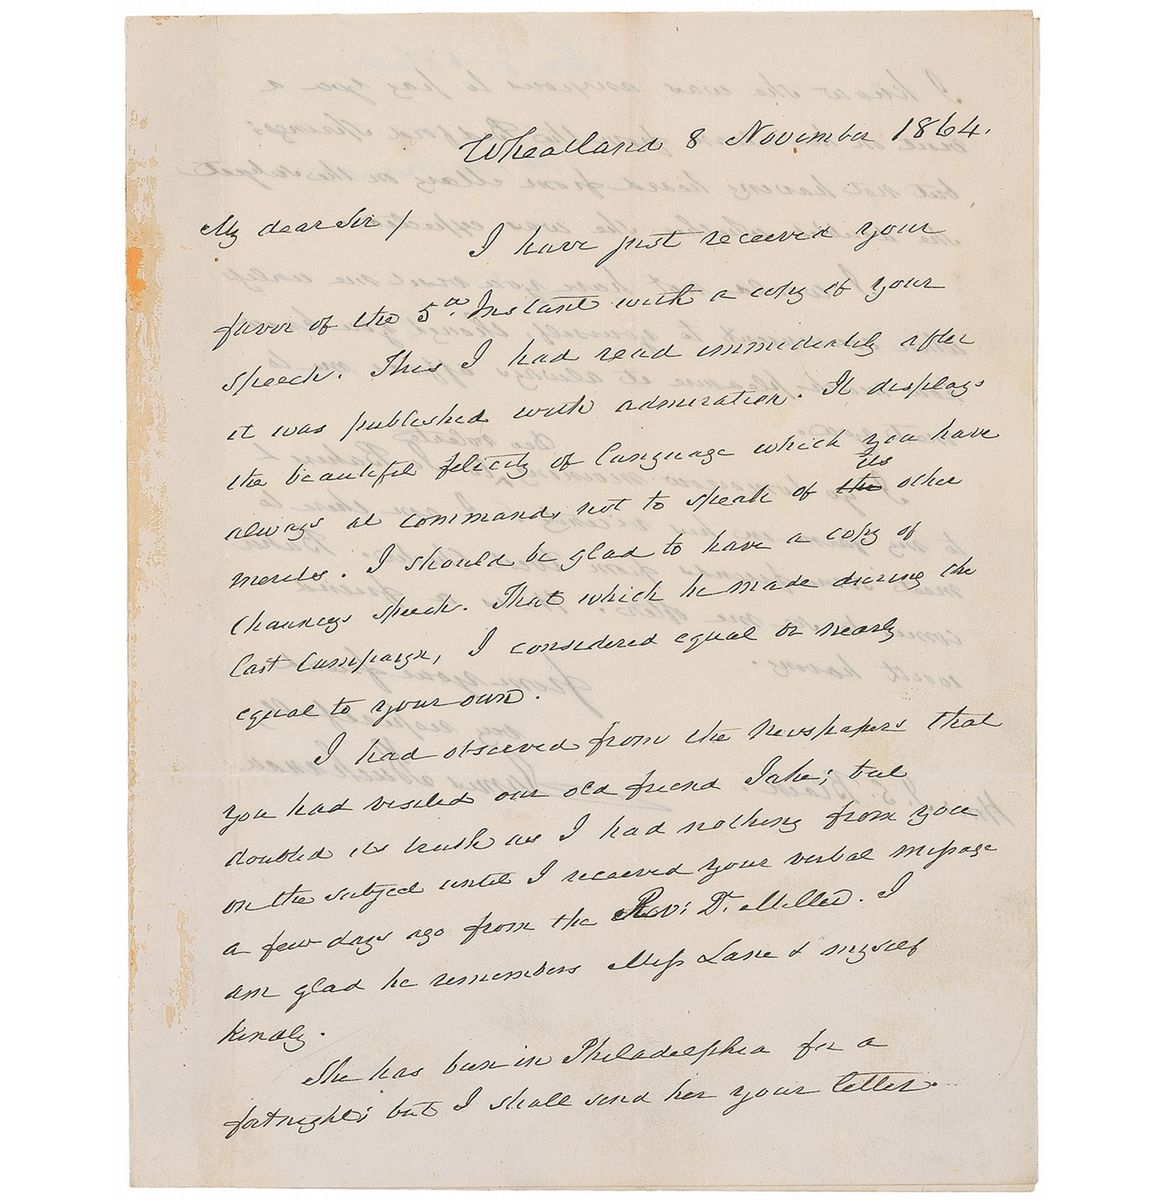 Wheatland 8 November 1864.
My dear Sir /
I have just received your
favor of the 5th. Instant with a copy of your
speech. This I had read immediately after
it was published with admiration. It displays
the beautiful felicity of language which you have
always at command, not to speak of the its other
merits. I should be glad to have a copy of
Chaunceys speech. That which he made during the
last Campaign, I considered equal or nearly
equal to your own.
I had observed from the newspapers that
you had visited our old friend Jake; but
doubted its truth as I had nothing from you
on the subject until I received your verbal message
a few days ago from the Rev: D. Miller. I
am glad he remembers Miss Lane & myself
kindly.
She has been in Philadelphia for a
fortnight; but I shall send her your letter.